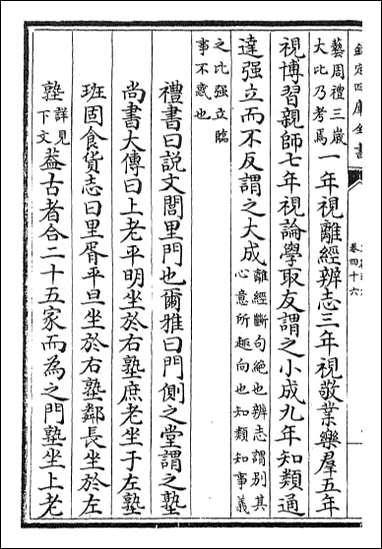 欽定四庫全書
卷四十六
藝周禮三歲
大比乃考焉
一年視離經辨志三年視敬業樂羣五年
視博習親師七年視論學取友謂之小成九年知類通
達强立而不反謂之大成
離經斷句絶也辨志謂别其
心意所趣向也知類知事義
之比强立臨
事不惑也
禮書曰説文閭里門也爾雅曰門側之堂謂之塾
尚書大傳曰上老平明坐於右塾庶老坐于左塾
班固食貨志曰里胥平旦坐於右塾鄰長坐於左
塾
詳見
下文
葢古者合二十五家而為之門塾坐上老